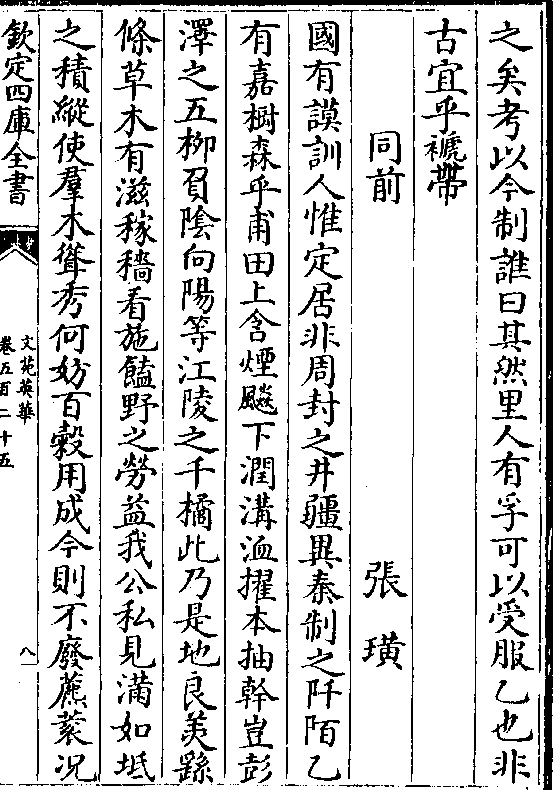 之矣考以今制誰曰其然里人有孚可以受服乙也非
古宜乎褫帶
同前　張璜
國有謨訓人惟定居非周封之井疆異秦制之阡陌乙
有嘉樹森乎甫田上含煙飈下潤溝洫擢本抽幹豈彭
澤之五柳負陰向陽等江陵之千橘此乃是地良美繇
條草木有滋稼穡看施饁野之勞益我公私見滿如坻
之積縱使羣木聳秀何妨百穀用成今則不廢藨蓘况
欽定四庫全書
文苑英華
卷五百二十五
八